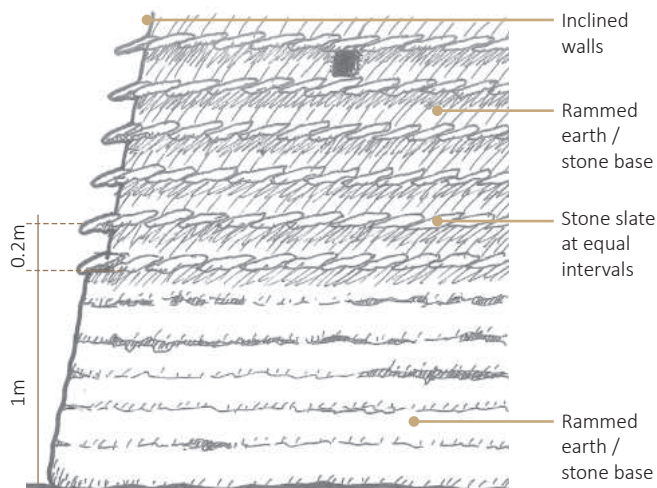 Inclined
walls
Rammed
earth /
stone base
Stone slate
at equal
intervals
0.2m
1m
Rammed
earth /
stone base